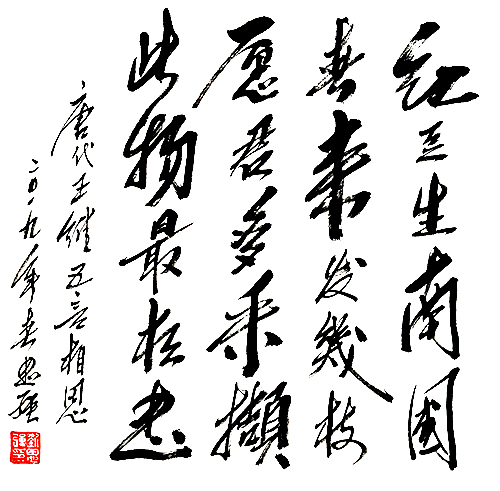 红豆生南國
春来发幾枝
愿君多采擷
此物最相思
唐代王維五言相思
二〇一九年春忠强